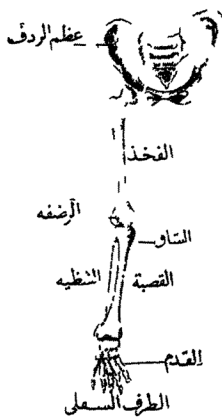 عظم الردف
الفخذ
الرضفه
الساق
الشظيه
القصبة
القدم
الطرف السفلى